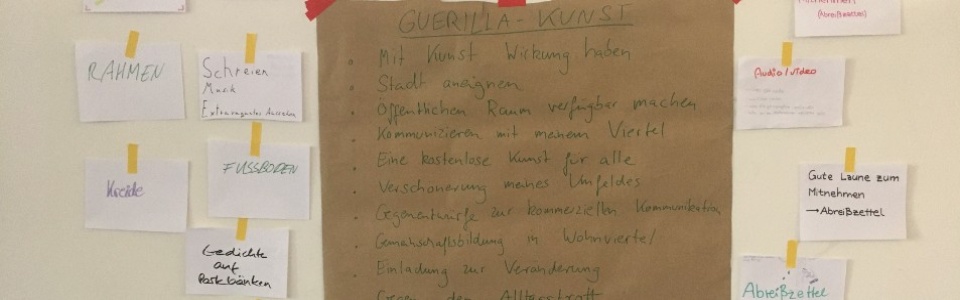 RAHMEN
Schreien
Extravagantes Aussehen
FUSSBODEN
Kreide
Gedichte
auf
Parkbänken
GUERILLA-KUNST
Mit Kunst Wirkung haben
Stadt aneignen
Öffentlichen Raum verfügbar machen
Kommunizieren mit meinem Viertel
Eine kostenlose Kunst für alle
Verschönerung meines Umfeldes
Gegenentwürfe zur kommerziellen Kommunikation
Gemeinschaftsbildung in Wohnviertel
Einladung zur Veränderung
Gegen den
(Abreißzettel)
Audio/Video
Gute Laune zum
Mitnehmen
→Abreißzettel
Abreißzettel